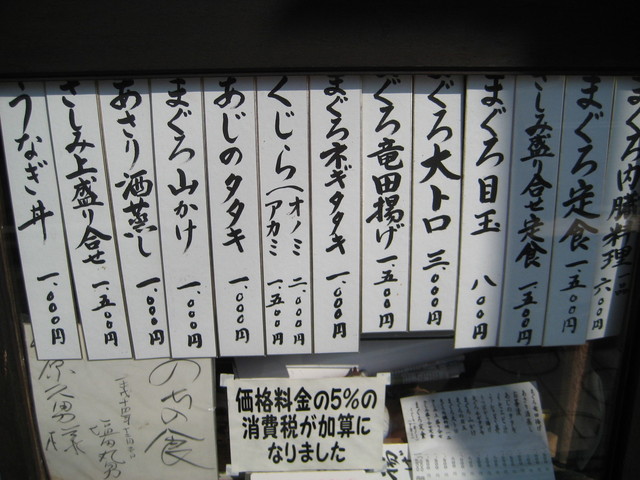 まぐろ内臓料理 六〇〇円
まぐろ定食 一.五〇〇円
さしみ盛り合せ定食 一.五〇〇円
まぐろ目玉 八〇〇円
ぐろ大トロ 三.〇〇〇円
ぐろ竜田揚げ 一.五〇〇円
まぐろネギタタキ 一.〇〇〇円
くじら(オノミ 二.〇〇〇円
アカミ 一.五〇〇円
あじのタタキ 一.〇〇〇円
まぐろ山かけ 一.〇〇〇円
あさり酒蒸し 一.〇〇〇円
さしみ上盛り合せ 一.五〇〇円
うなぎ丼 一.〇〇〇円
価格料金の5%の
消費税が加算に
なりました
のちの食